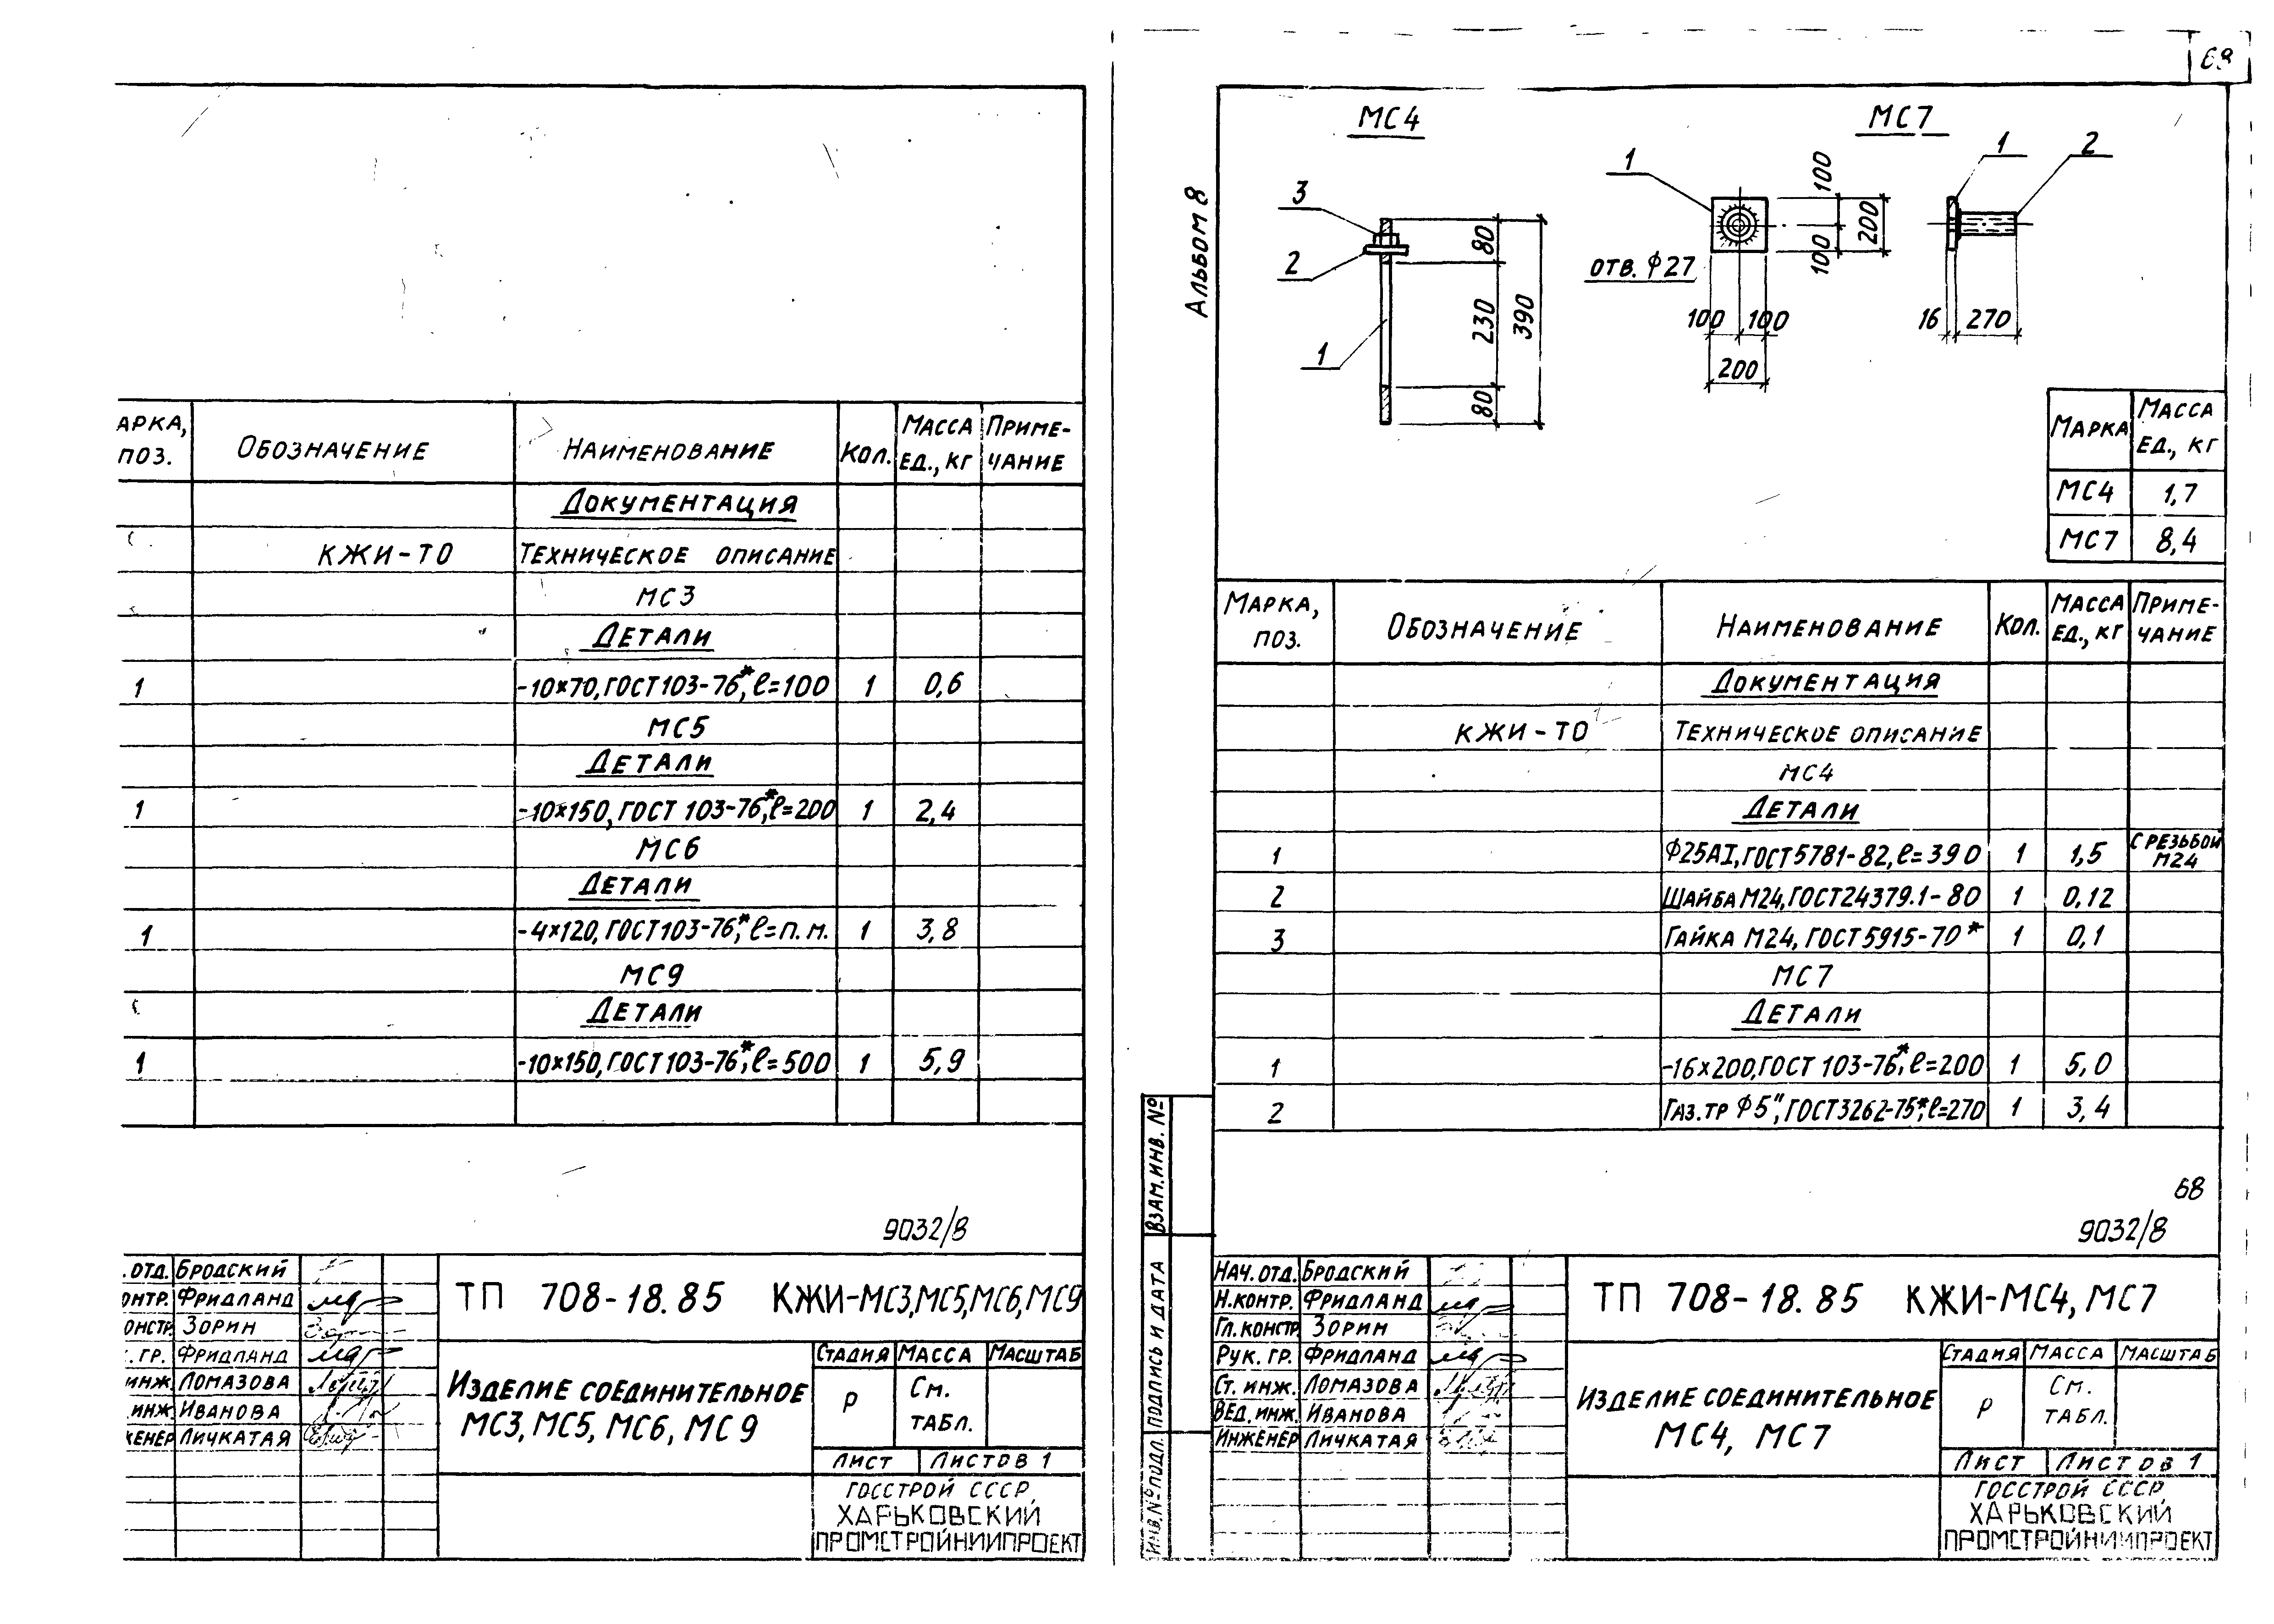 АРКА, ПОЗ. ОБОЗНАЧЕНИЕ НАИМЕНОВАНИЕ КОЛ. МАССА ЕД., КГ ПРИМЕ-ЧАНИЕ
ДОКУМЕНТАЦИЯ
КЖИ-ТО ТЕХНИЧЕСКОЕ ОПИСАНИЕ
МС3
ДЕТАЛИ
1 -10×70, ГОСТ 103-76*, ℓ=100 1 0,6
МС5
ДЕТАЛИ
1 -10×150, ГОСТ 103-76*, ℓ=200 1 2,4
МС6
ДЕТАЛИ
1 -4×120, ГОСТ 103-76*, ℓ=п.м. 1 3,8
МС9
ДЕТАЛИ
1 -10×150, ГОСТ 103-76*, ℓ=500 1 5,9
9032/8
.ОТД. БРОДСКИЙ
ОНТР. ФРИДЛАНД
ОНСТР. ЗОРИН
. ГР. ФРИДЛАНД
ИНЖ. ЛОМАЗОВА
.ИНЖ. ИВАНОВА
ЖЕНЕР ЛИЧКАТАЯ
ТП 708-18.85 КЖИ-МС3,МС5,МС6,МС9
ИЗДЕЛИЕ СОЕДИНИТЕЛЬНОЕ
МС3, МС5, МС6, МС9
СТАДИЯ МАССА МАСШТАБ
Р СМ.
ТАБЛ.
ЛИСТ ЛИСТОВ 1
ГОССТРОЙ СССР
ХАРЬКОВСКИЙ
ПРОМСТРОЙНИИПРОЕКТ
АЛЬБОМ 8
МС4
3
2
1
80
230
80
390
МС7
1
ОТВ. ϕ27
100
100
200
100 100
200
1 2
16 270
МАРКА МАССА ЕД., КГ
МС4 1,7
МС7 8,4
МАРКА, ПОЗ. ОБОЗНАЧЕНИЕ НАИМЕНОВАНИЕ КОЛ. МАССА ЕД., КГ ПРИМЕ-ЧАНИЕ
ДОКУМЕНТАЦИЯ
КЖИ-ТО ТЕХНИЧЕСКОЕ ОПИСАНИЕ
МС4
ДЕТАЛИ
1 ϕ25АI, ГОСТ 5781-82, ℓ=390 1 1,5 С РЕЗЬБОЙ М24
2 ШАЙБА М24, ГОСТ 24379.1-80 1 0,12
3 ГАЙКА М24, ГОСТ 5915-70* 1 0,1
МС7
ДЕТАЛИ
1 -16×200, ГОСТ 103-76*, ℓ=200 1 5,0
2 ГАЗ.ТР ϕ5", ГОСТ 3262-75*, ℓ=270 1 3,4
68
9032/8
ВЗАМ.ИНВ. №
ПОДПИСЬ И ДАТА
ИНВ.№ ПОДЛ.
НАЧ. ОТД. БРОДСКИЙ
Н.КОНТР. ФРИДЛАНД
ГЛ. КОНСТР. ЗОРИН
РУК. ГР. ФРИДЛАНД
СТ. ИНЖ. ЛОМАЗОВА
ВЕД. ИНЖ. ИВАНОВА
ИНЖЕНЕР ЛИЧКАТАЯ
ТП 708-18.85 КЖИ-МС4, МС7
ИЗДЕЛИЕ СОЕДИНИТЕЛЬНОЕ
МС4, МС7
СТАДИЯ МАССА МАСШТАБ
Р СМ.
ТАБЛ.
ЛИСТ ЛИСТОВ 1
ГОССТРОЙ СССР
ХАРЬКОВСКИЙ
ПРОМСТРОЙНИИПРОЕКТ